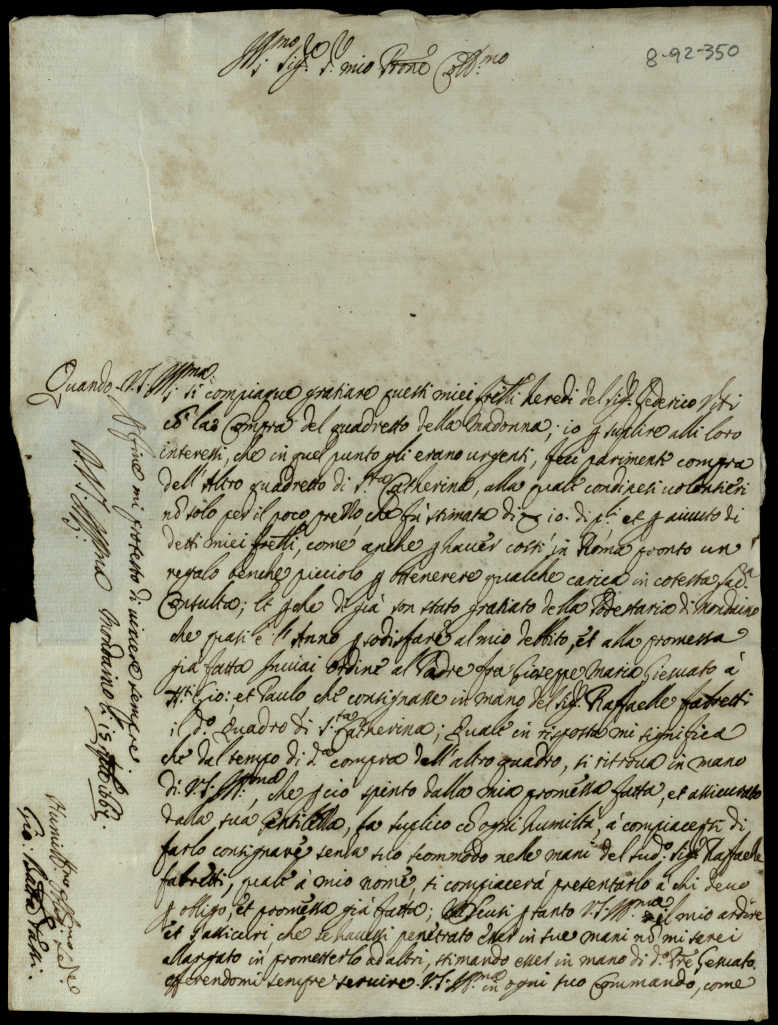 8-92-350
Ill:mo Sig.r S.r mio Prone Coll:mo
Quando V.S. Ill:ma si compiaque gratiare questi miei frelli heredi del sig.r Federico Viti
cõ la compra del quadretto della Madonna; io p suplire alli loro
interessi, che in quel punto gli erano urgenti, feci parimenti compra
dell'Altro quadretto di S.ta Catherina, alla quale condipesi volontieri
nõ solo per il poco prezzo che fu stimata di 10. di p.li et p aiuto di
detti miei frelli, come anche p haver costì in Roma pronto un
regalo benche picciolo p ottenerere qualche carica in cotesta Sac.a
Consulta; et pche di già son stato gratiato della Podestaria di Mondaino
che quasi è l'Anno p sodisfare al mio debito, et alla promessa
già fatta inviai ordine al Padre fra Gioseppe Maria Giesuato à
SS.ti Gio: et Paulo che consignasse in mano del sig.r Raffaelle fabretti
il d.o Quadro di S.ta Catherina; Quale in risposta mi significa
che dal tempo di d.a compra dell'altro quadro, si ritrova in mano
di V.S. Ill:ma, che p cio spinto dalla mia promessa fatta, et assicurato
dalla sua Gentilezza, la suplico cõ ogni humiltà, à compiacersi di
farlo consignare senza suo scommodo nelle mani del sud.o sig.r Raffaelle
fabretti, quale à mio nome, si compiacerà presentarlo à chi devo
p obligo, et promessa già fatta; Scusi p tanto V.S. Ill:ma il mio ardire
et s'assicuri che se havessi penetrato esser in sue mani nõ mi sarei
alargato in prometterlo ad altri, stimando esser in mano di d.o Pre Giesuato
offerendomi sempre servire V.S. Ill:ma in ogni suo Commando, come
Affine mi protesto di vivere sempre
D.V.S. Ill:ma Mondaino li 15
Humiliss:mo et
Gio: Batta Viti: